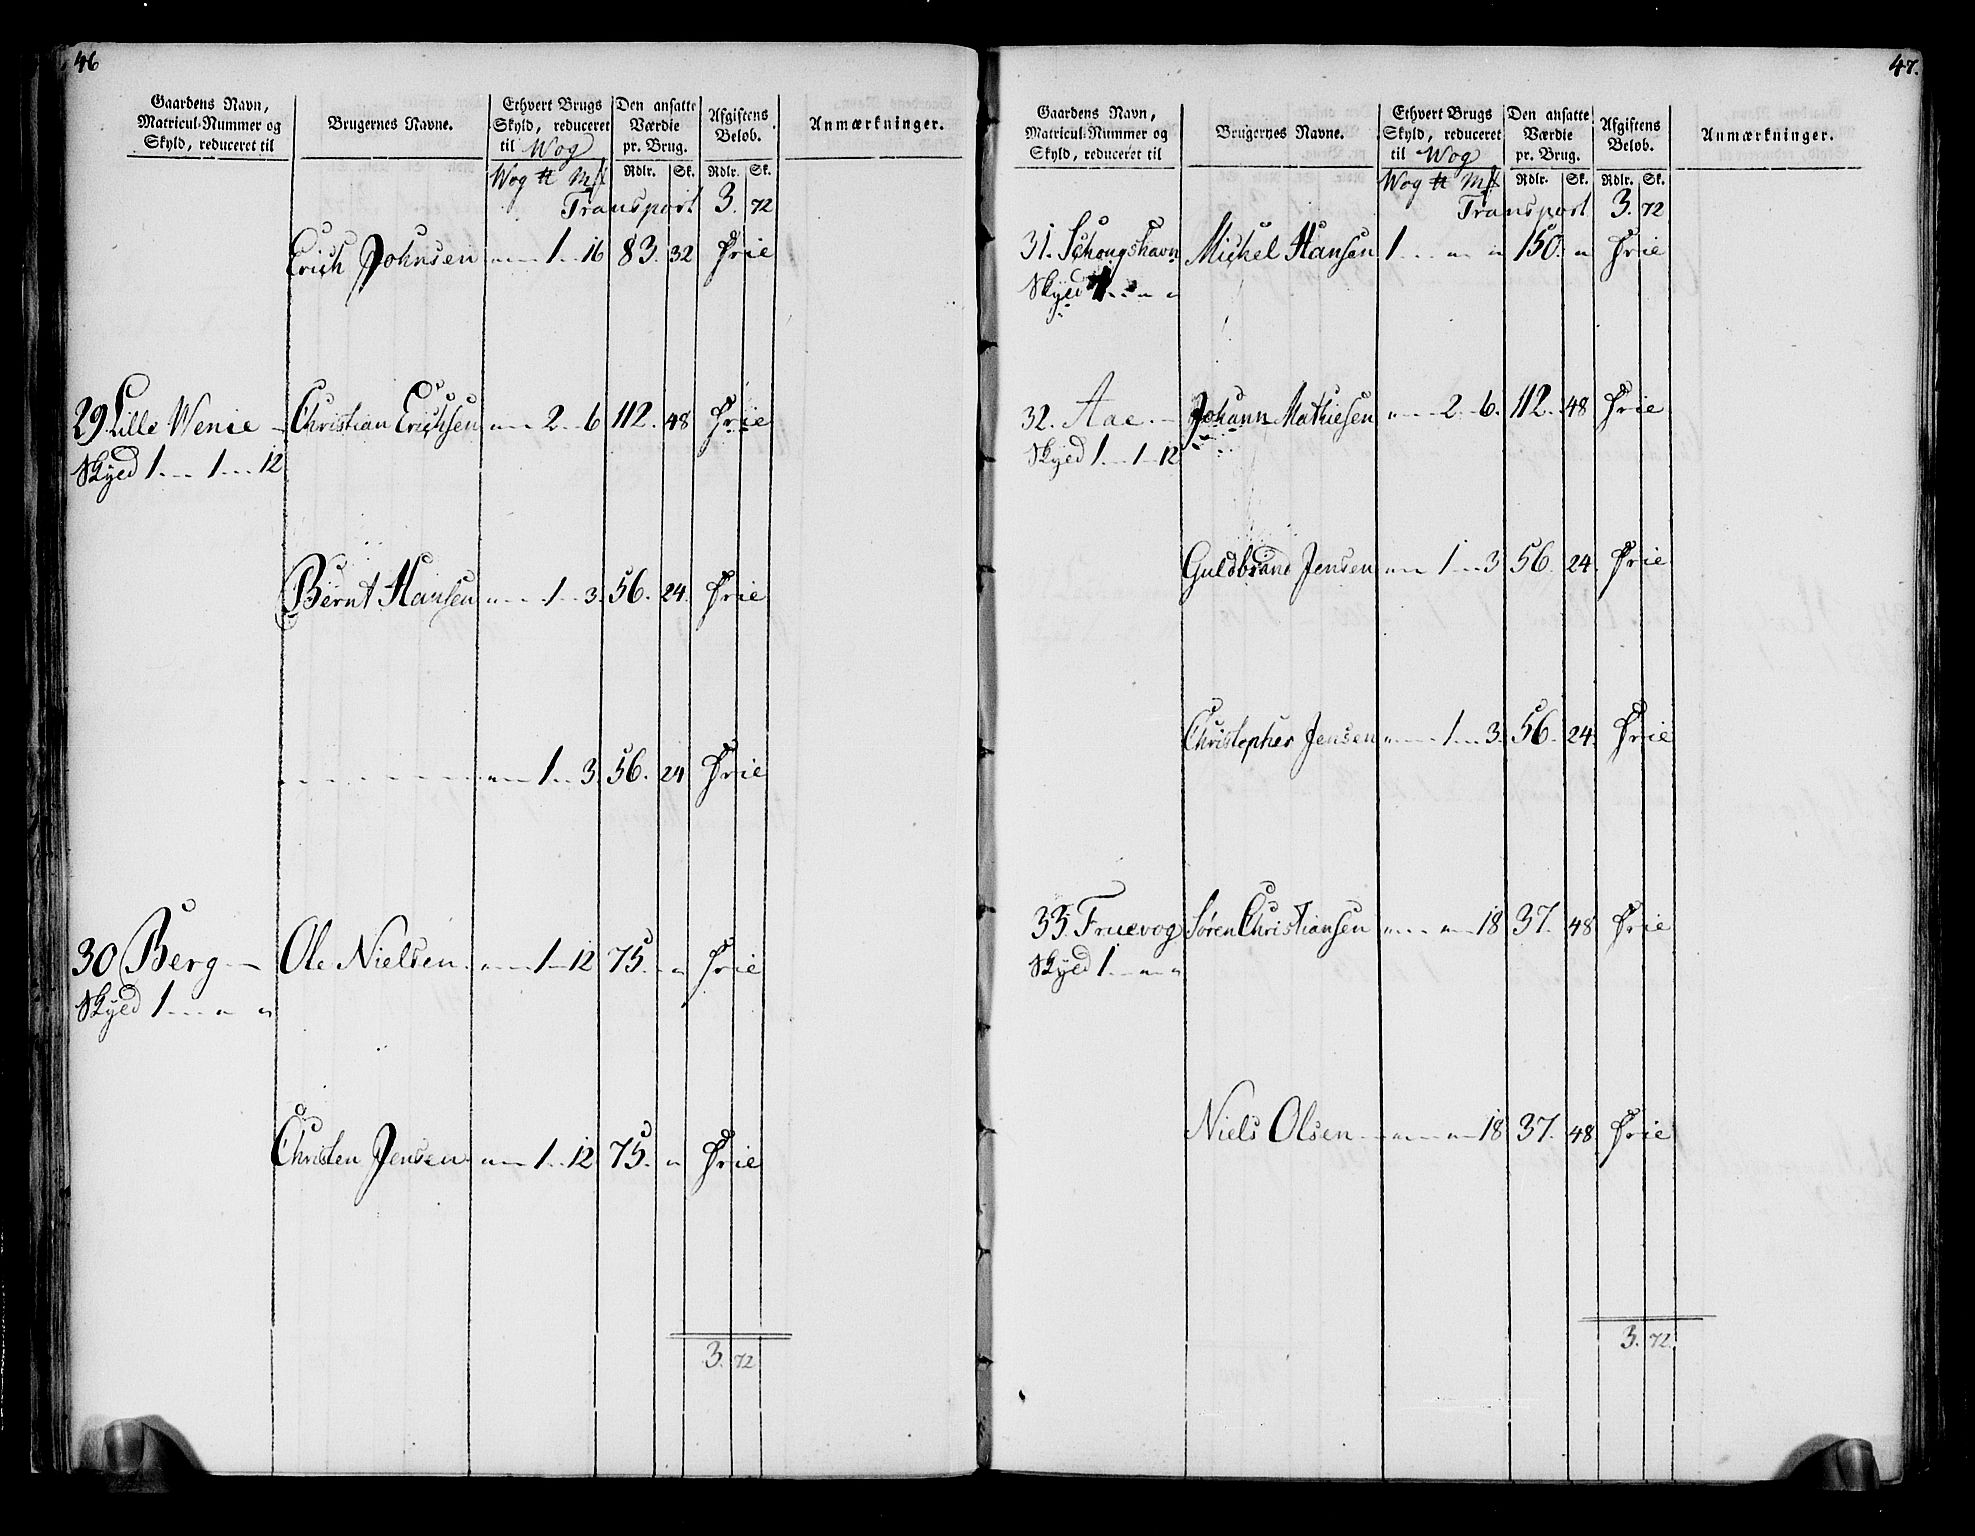 46
Gaardens Navn, Matricul-Nummer og Skyld, reduceret til
Brugernes Navne.
Ethvert Brugs Skyld, reduceret til Wog
Den ansatte Værdie pr. Brug.
Afgiftens Beløb.
Anmærkninger.
Wog ℔ Mk Rdlr. Sk. Rdlr. Sk.
Transport 3. 72
Erich Johnsen " 1 16 83. 32 Frie
29. Lille Wenie Christian Erichsen " 2 6 112. 48 Frie
Skyld 1 1 12
Bernt Hansen " 1 3. 56. 24. Frie
" 1 3. 56. 24 Frie
30 Berg Ole Nielsen " 1 12 75. " Frie
Skyld 1 " "
Christen Jensen " 1 12 75. " Frie
3. 72
47.
Gaardens Navn, Matricul-Nummer og Skyld, reduceret til
Brugernes Navne.
Ethvert Brugs Skyld, reduceret til Wog
Den ansatte Værdie pr. Brug.
Afgiftens Beløb.
Anmærkninger.
Wog ℔ Mk Rdlr. Sk. Rdlr. Sk.
Transport 3. 72
31. Schougshavn Michel Hansen 1 " " 150. " Frie
Skyld 1 " "
32. Aae. Johann Mathiesen " 2 6. 112. 48 Frie
Skyld 1 1 12
Guldbrand Jensen " 1 3 56. 24. Frie
Christopher Jensen " 1 3. 56. 24. Frie
33. Fruevog Søren Christiansen " " 18 37. 48 Frie
Skyld 1 " "
Niels Olsen " " 18 37. 48 Frie
3. 72.